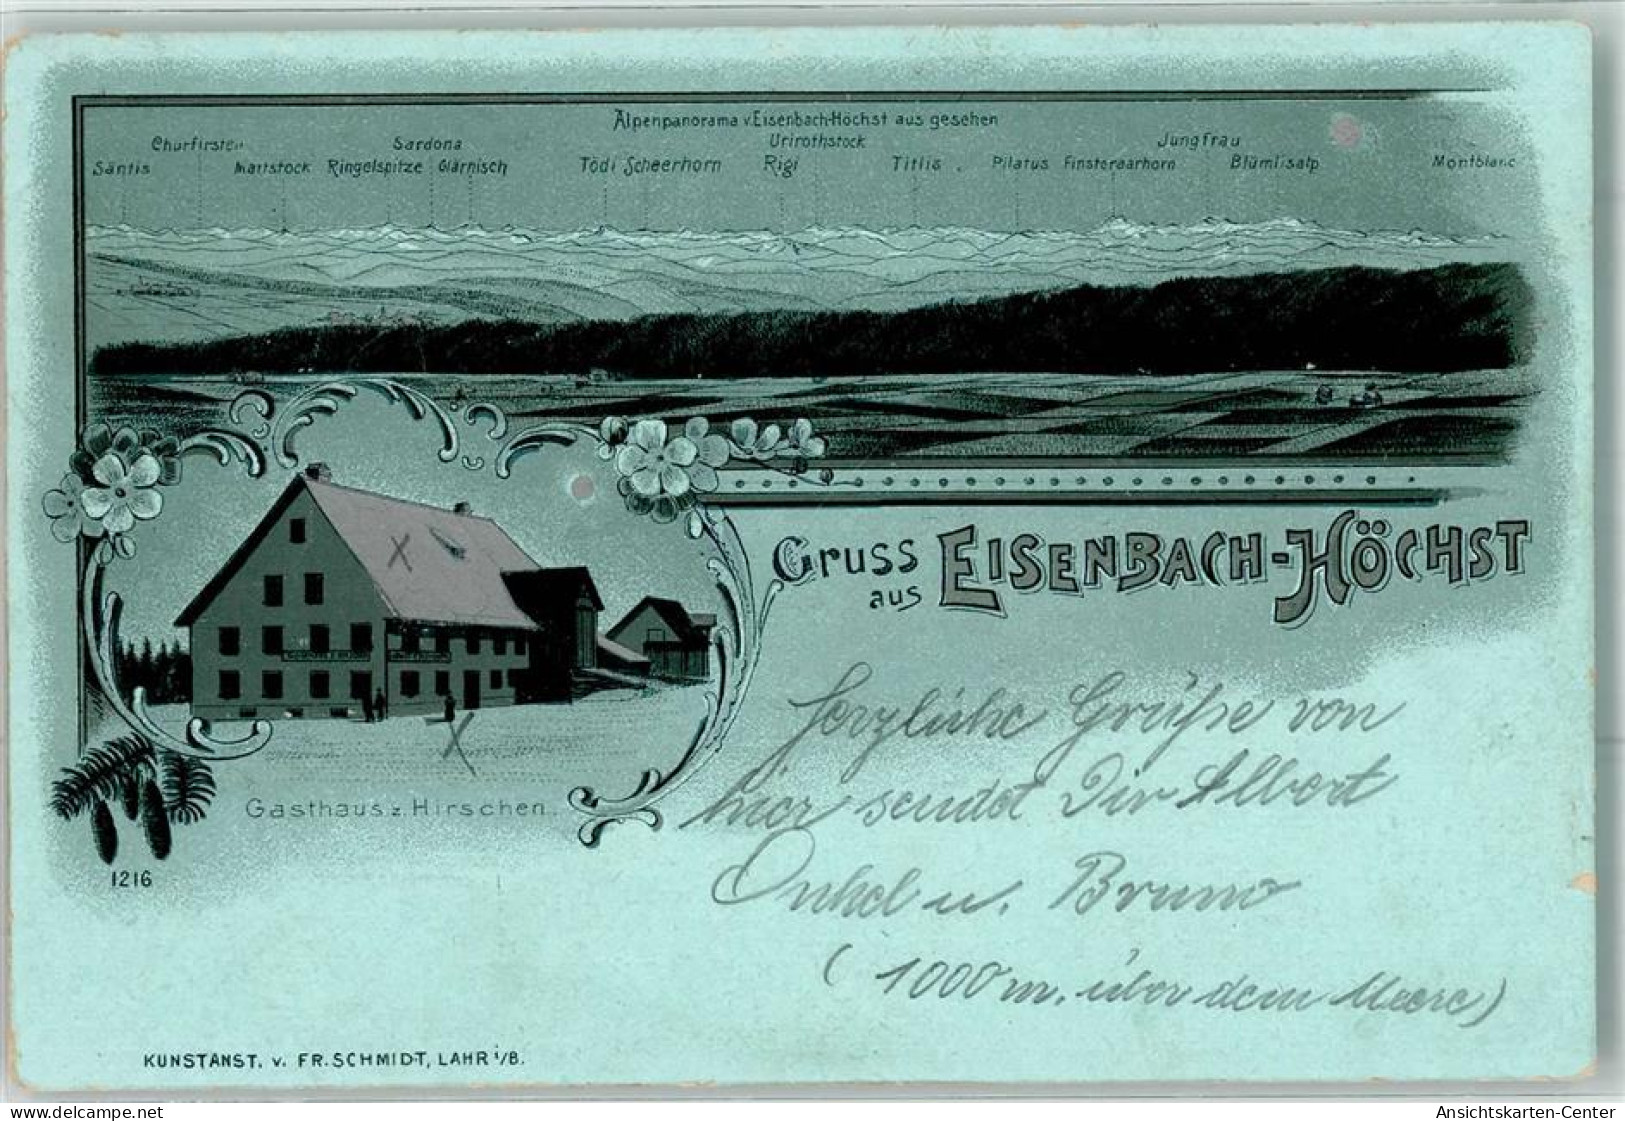 Alpenpanorama v. Eisenbach-Höchst aus gesehen
Churfirsten Sardona Urirothstock Jungfrau
Säntis Martstock Ringelspitze Glärnisch Tödi Scheerhorn Rigi Titlis Pilatus Finsteraarhorn Blümlisalp Montblanc
Gruss
aus EISENBACH-HÖCHST
Herzliche Grüße von
hier sendet Dir Albert
Onkel u. Bruno
(1000 m. über dem Meere)
Gasthaus z. Hirschen.
1216
KUNSTANST. v. FR. SCHMIDT, LAHR i/B.
oldthing.de
Ansichtskarten-Center